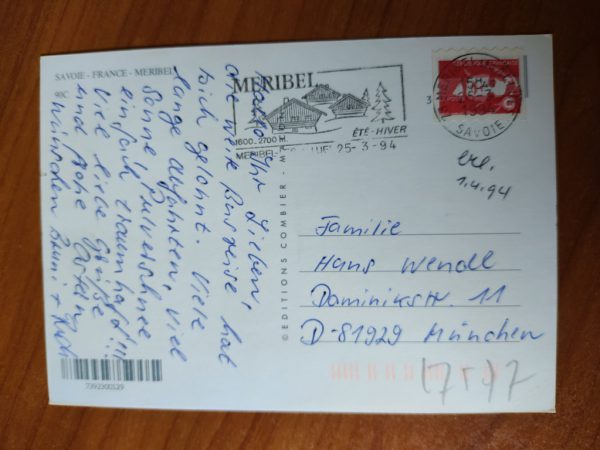 SAVOIE - FRANCE - MERIBEL
90C
MERIBEL
1600-2700 M.
ÉTÉ-HIVER
25-3-94
RÉPUBLIQUE FRANÇAISE
SAVOIE
erl.
1.4.94
Hallo Ihr Lieben,
die weite Busreise hat
sich gelohnt. Viele
lange Abfahrten, viel
Sonne, Pulverschnee
einfach traumhaft!!!
Viel liebe Grüße
und frohe Ostern
wünschen Bruni +
© EDITIONS COMBIER - M
Familie
Hans Wendl
Dominikstr. 11
D-81929 München
7392300129
17577